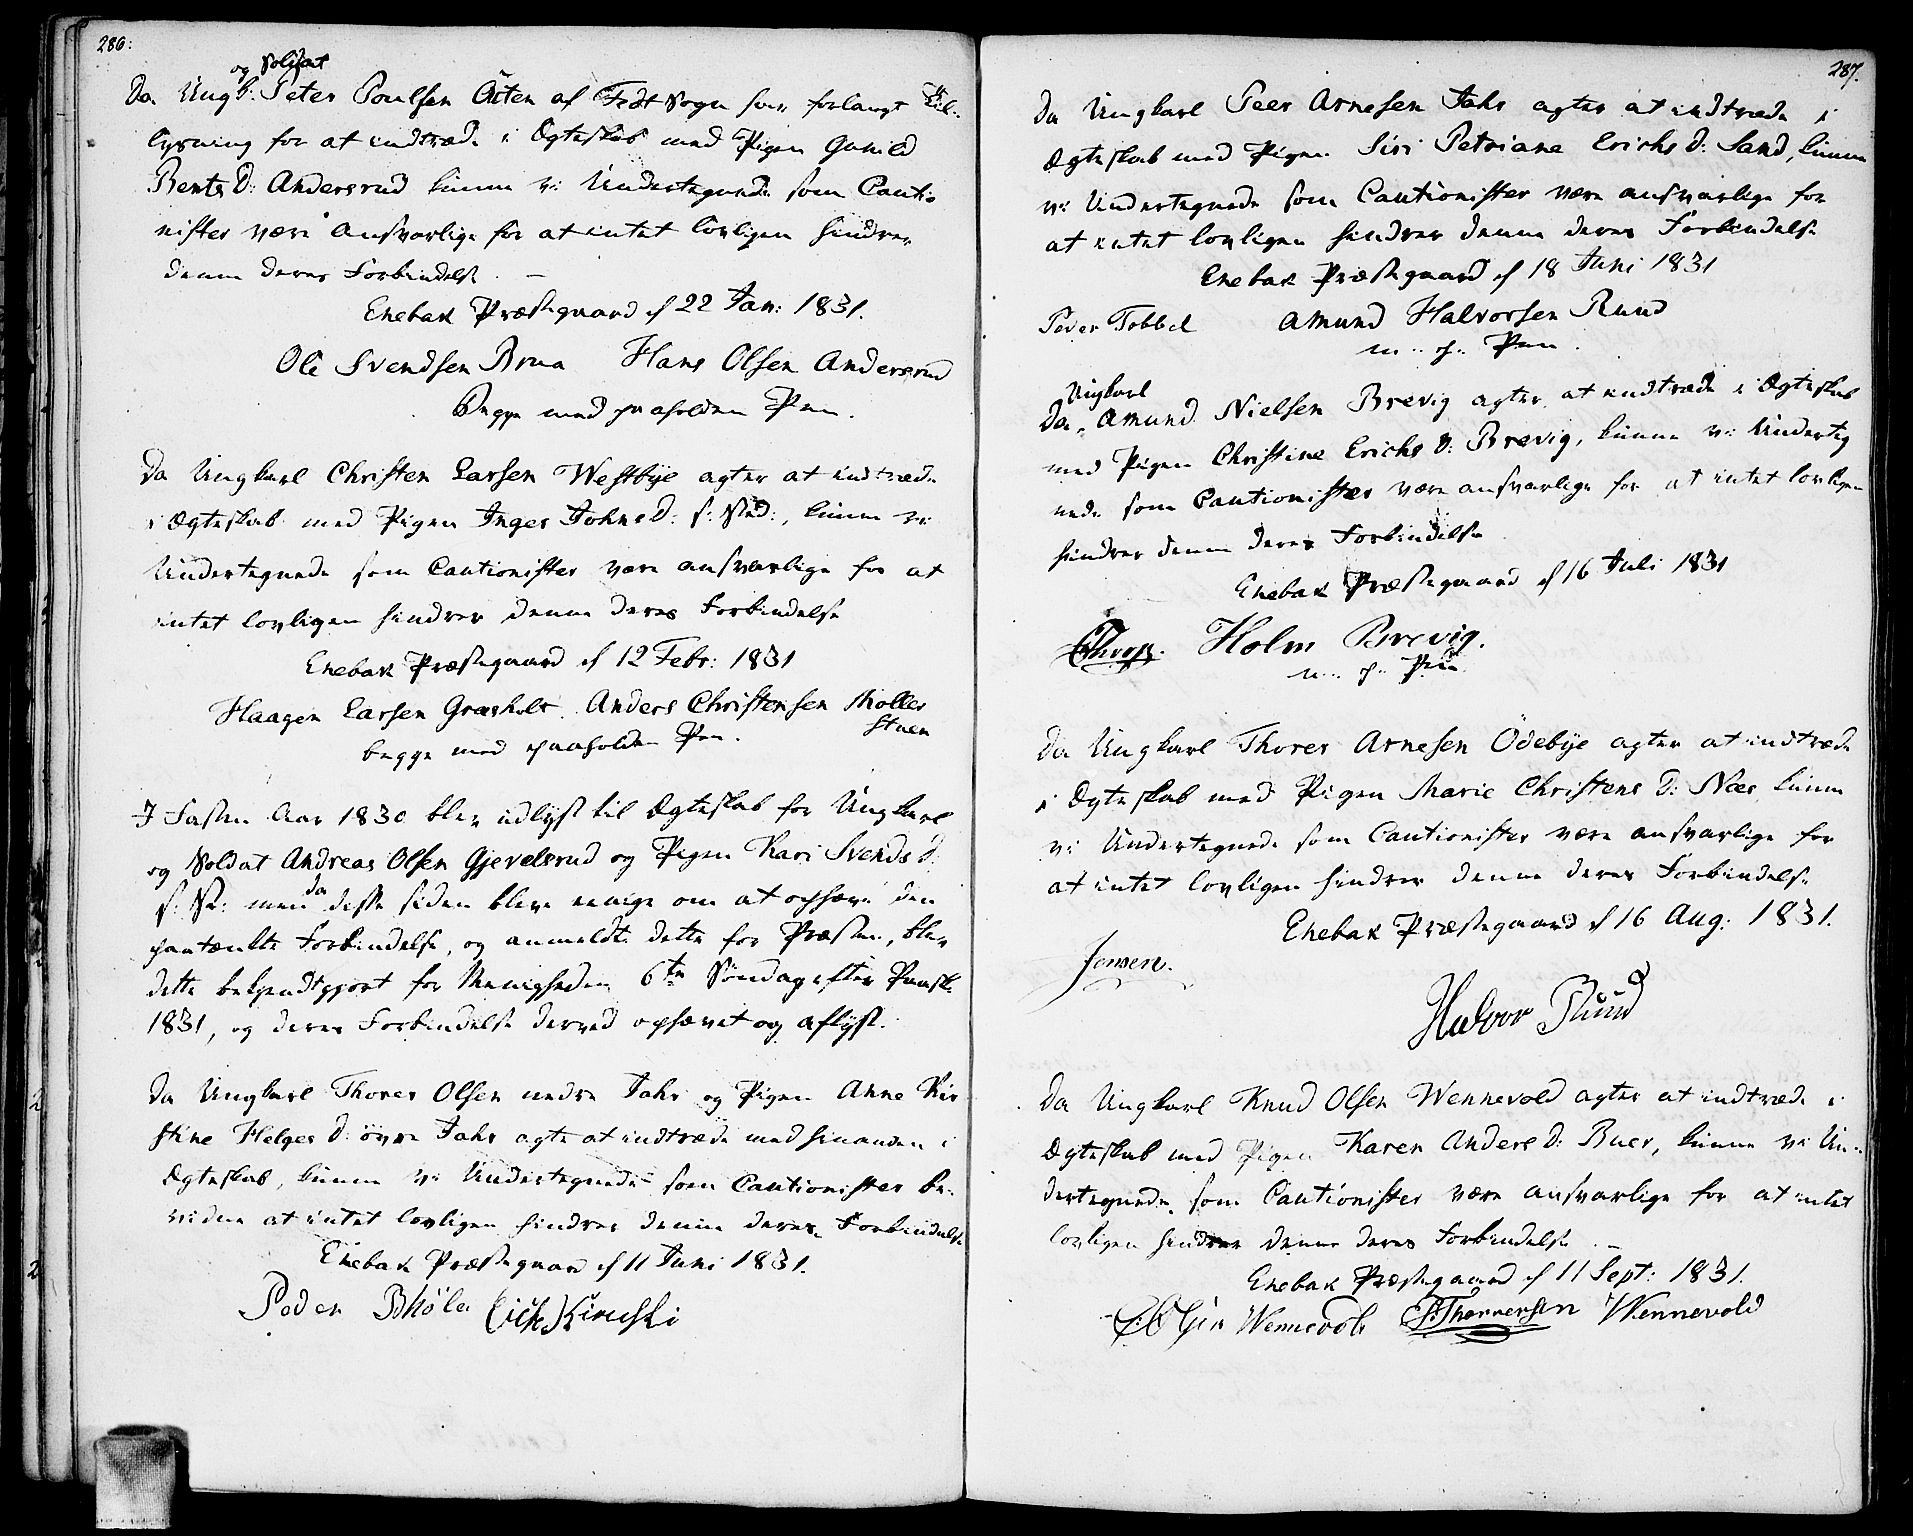 286.
og Soldat
Da Ungk. Peter Poulsen Aiten af Fedt Sogn har forlangt Til-
lysning for at indtræde i Ægteskab med Pigen Gunild
Bents D: Andersrud kunne vi Undertegnede som Cautio
nister være Ansvarlige for at intet lovligen hindrer
denne deres Forbindelse. –
Enebak Præstegaard d 22 Jan: 1831.
Ole Svendsen Brua Hans Olsen Andersrud
Begge med paaholden Pen.
Da Ungkarl Christen Larsen Westbye agter at indtræde
i Ægteskab med Pigen Inger Johns D: s: Sted:, kunne vi
Undertegnede som Cautionister være ansvarlige for at
intet lovligen hindrer denne deres Forbindelse
Enebak Præstegaard d 12 Febr: 1831
Haagen Larsen Anders Christensen Møller
Stuen
begge med paaholden Pen.
I Aar 1830 blev udlyst til Ægteskab for Ungkarl
og Soldat Andreas Olsen Gjevelsrud og Pigen Kari Svends D:
s: St: men da disse siden bleve enige om at ophæve den
paatænkte Forbindelse, og anmeldte dette for Præsten, blev
dette bekjendtgjort for Menigheden 6te Søndag efter Paaske
1831, og deres Forbindelse derved ophævet og aflyst.
Da Ungkarl Thorer Olsen nedre Jahr og Pigen Anne Kir
stine Helges D: øvre Jahr agte at indtræde med hinanden i
Ægteskab, kunne vi Undertegnede som Cautionister be-
vidne at intet lovligen hindrer denne deres Forbindelse
Enebak Præstegaard d 11 Juni 1831.
Peder Bhøler Erich Kiruski
287.
Da Ungkarl Peer Arnesen Jahr agter at indtræde i
Ægteskab med Pigen Siri Petriane Erichs D: Sand, kunne
vi Undertegnede som Cautionister være ansvarlige for
at intet lovligen hindrer denne deres Forbindelse
Enebak Præstegaard d 18 Juni 1831
Peder Tobbel Amund Halvorsen Ruud
m. p. Pen.
Ungkarl
Da Amund Nielsen Brevig agter at indtræde i Ægteskab
med Pigen Christine Erichs D: Brevig, kunne vi Underteg
nede som Cautionister være ansvarlige for at intet lovligen
hindrer denne deres Forbindelse
Enebak Præstegaard d 16 Juli 1831
Holm Brevig.
m. p. Pen
Da Ungkarl Thorer Arnesen Ödebye agter at indtræde
i Ægteskab med Pigen Marie Christens D: Næs kunne
vi Undertegnede som Cautionister være ansvarlige for
at intet lovligen hindrer denne deres Forbindelse
Enebak Præstegaard d 16 Aug: 1831.
Jensen.
Halvor Ruud
Da Ungkarl Knud Olsen Wennevold agter at indtræde i
Ægteskab med Pigen Karen Anders D: Buer, kunne vi Un-
dertegnede som Cautionister være ansvarlige for at intet
lovligen hindrer denne deres Forbindelse. –
Enebak Præstegaard d 11 Sept: 1831.
Olsen Wennevold Thorersen Wennevold